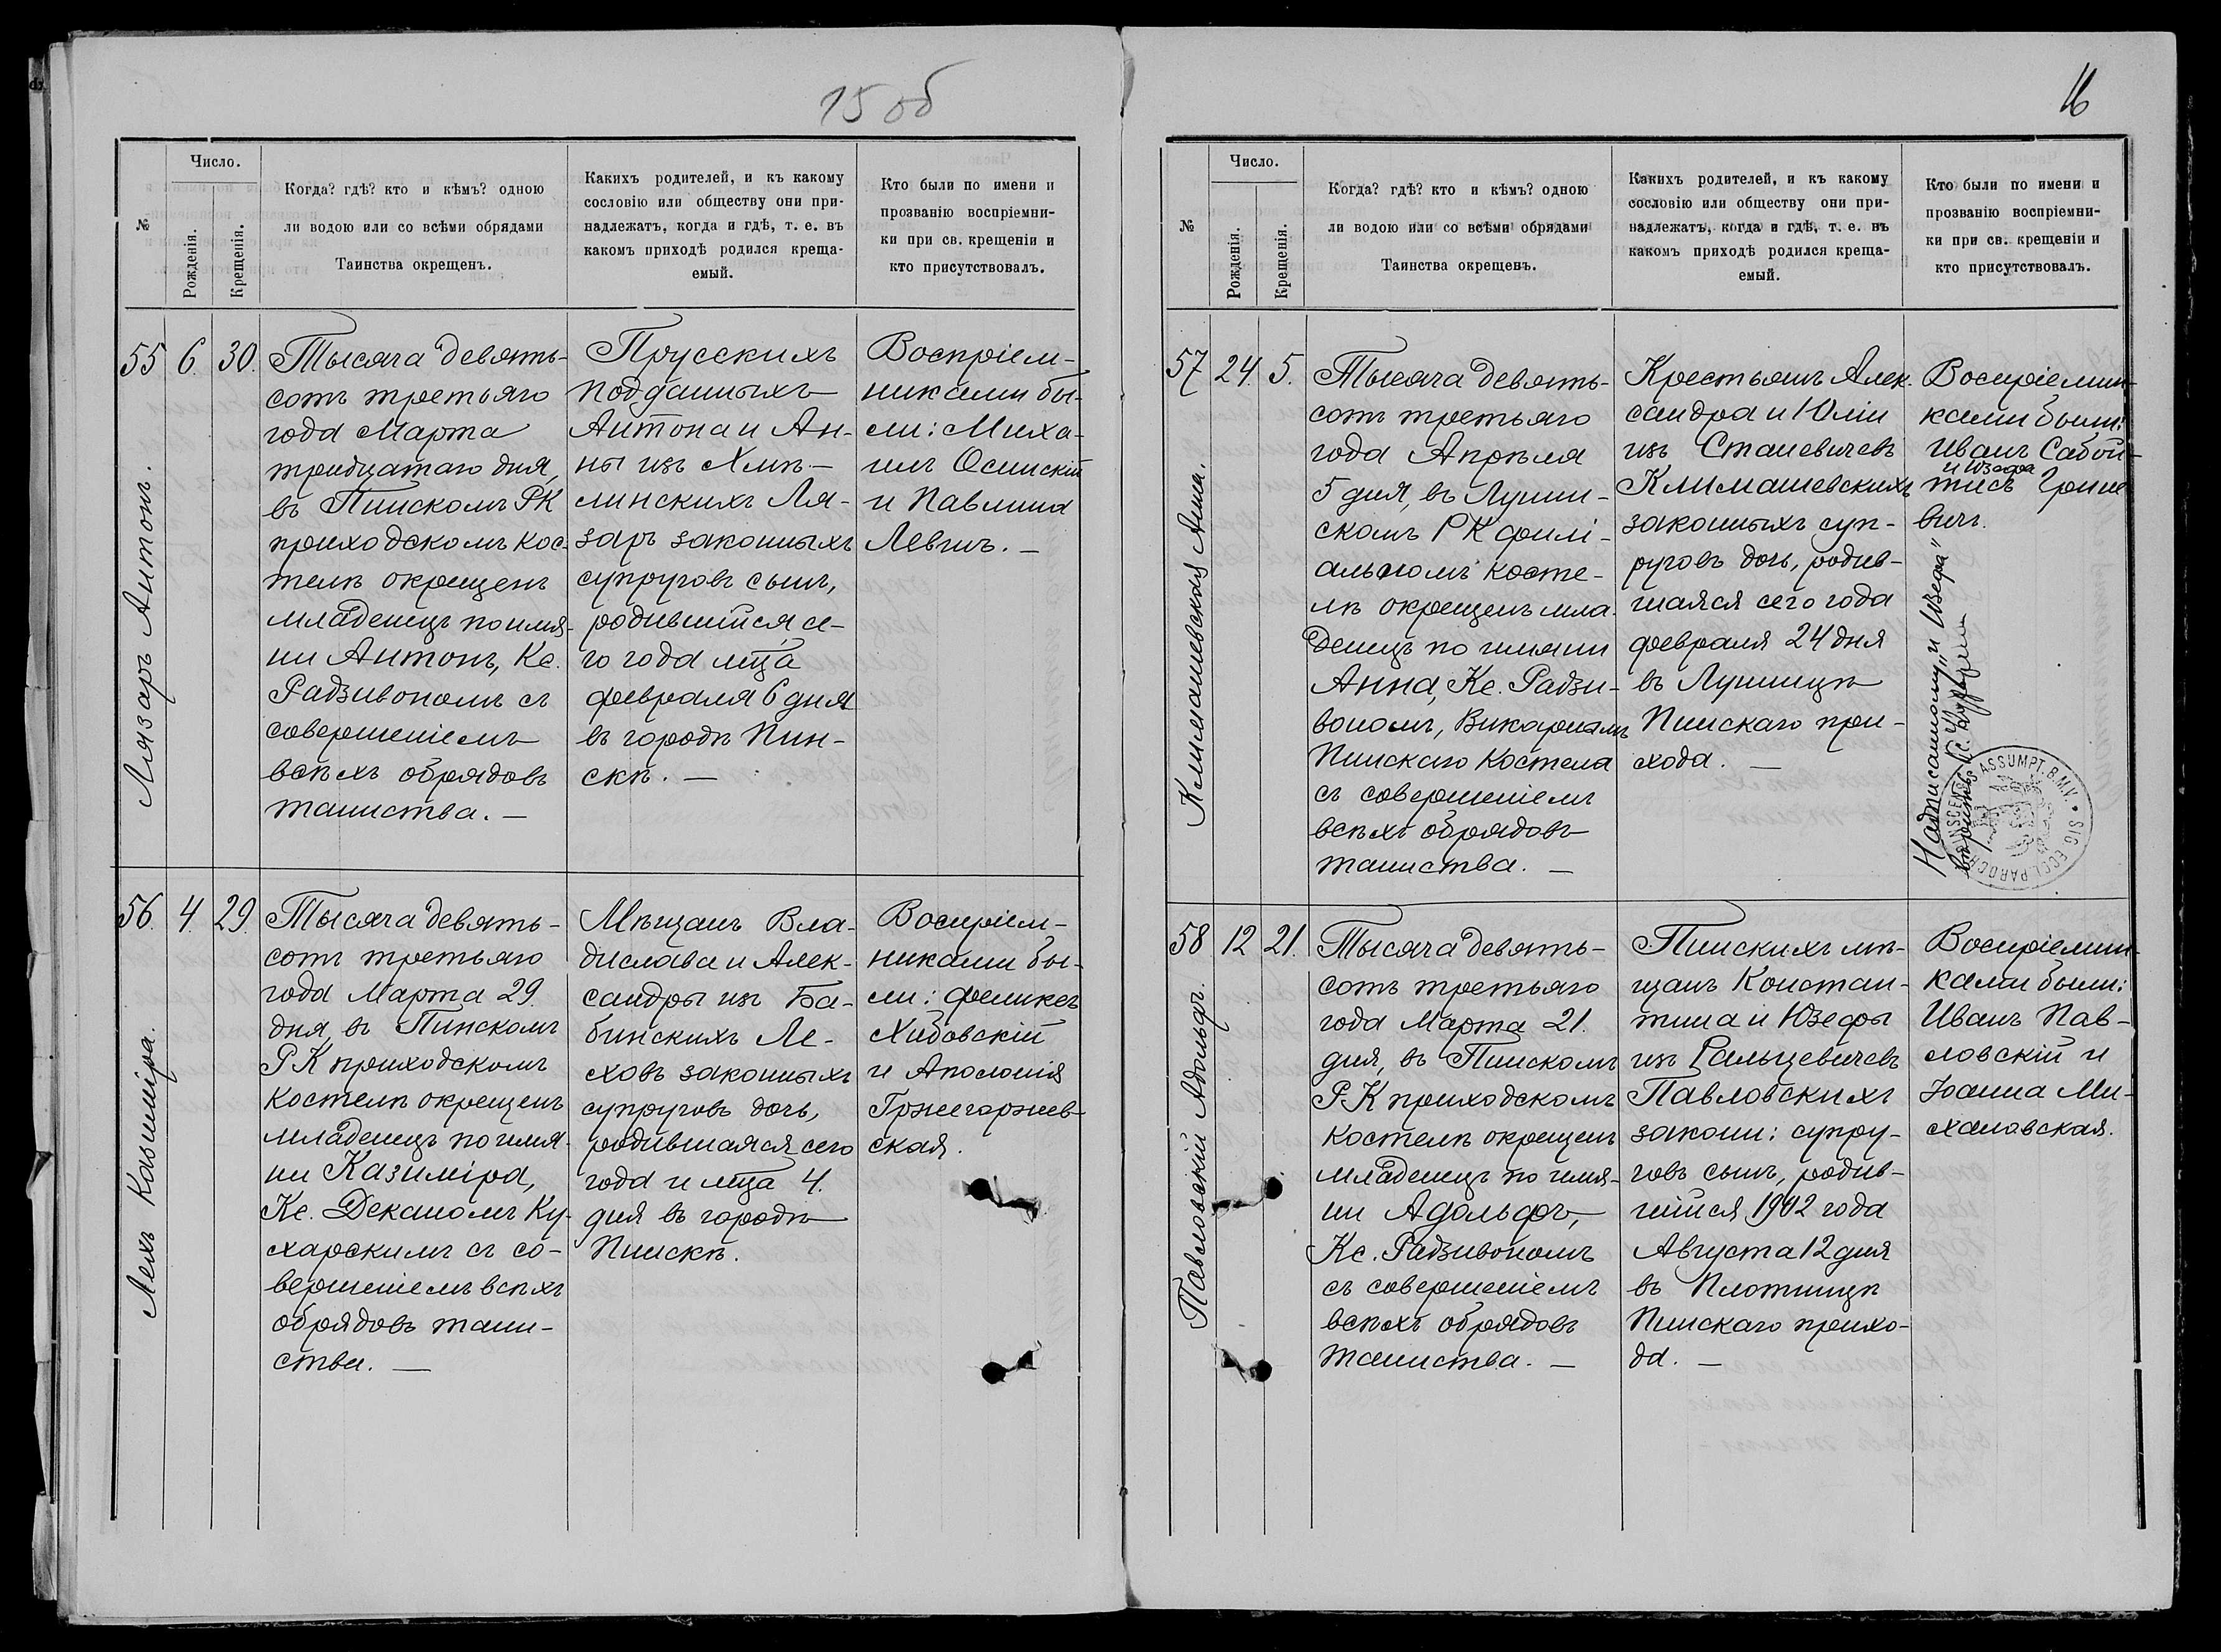 15 об
№
Число.
Рожденія.
Крещенія.
Когда? гдѣ? кто и кѣмъ? одною
ли водою или со всѣми обрядами
Таинства окрещенъ.
Какихъ родителей, и къ какому
сословію или обществу они при-
надлежатъ, когда и гдѣ, т. е. въ
какомъ приходѣ родился креща-
емый.
Кто были по имени и
прозванію воспріемни-
ки при св. крещеніи и
кто присутствовалъ.
55
Лязаръ Антонъ.
6.
30.
Тысяча девять-
сотъ третьяго
года Марта
тридцатаго дня,
въ Пинскомъ РК
приходскомъ кос-
телѣ окрещенъ
младенецъ по имя-
ни Антонъ, Кс.
Радзивономъ съ
совершеніемъ
всѣхъ обрядовъ
таинства. —
Прусскихъ
подданныхъ
Антона и Ан-
ны изъ Хмѣ-
линскихъ Ля-
заръ законныхъ
супруговъ сынъ,
родившійся се-
го года мца
февраля 6 дня
въ городѣ Пин-
скѣ. —
Воспріем-
никами бы-
ли: Миха-
илъ Осинскій
и Павлина
Левшъ. —
56.
Лехъ Казиміра.
4.
29.
Тысяча девять-
сотъ третьяго
года Марта 29.
дня, въ Пинскомъ
РК приходскомъ
костелѣ окрещенъ
младенецъ по имя-
ни Казиміра,
Кс. Деканомъ Ку-
харскимъ съ со-
вершеніемъ всѣхъ
обрядовъ таин-
ства. —
Мѣщанъ Вла-
дислава и Алек-
сандры изъ Ба-
бинскихъ Ле-
ховъ законныхъ
супруговъ дочь,
родившаяся сего
года и мца 4.
дня въ городѣ
Пинскѣ.
Воспріем-
никами бы-
ли: Феликсъ
Хибовскій
и Аполонія
Гржегоржев-
ская.
16
№
Число.
Рожденія.
Крещенія.
Когда? гдѣ? кто и кѣмъ? одною
ли водою или со всѣми обрядами
Таинства окрещенъ.
Какихъ родителей, и къ какому
сословію или обществу они при-
надлежатъ, когда и гдѣ, т. е. въ
какомъ приходѣ родился креща-
емый.
Кто были по имени и
прозванію воспріемни-
ки при св. крещеніи и
кто присутствовалъ.
57
Климашевская Анна.
24.
5.
Тысяча девять-
сотъ третьяго
года Апрѣля
5 дня, въ Лунин-
скомъ РК филі-
альномъ косте-
лѣ окрещенъ мла-
денецъ по имяни
Анна, Кс. Радзи-
вономъ, Викаріемъ
Пинскаго Костела
съ совершеніемъ
всѣхъ обрядовъ
таинства. —
Крестьянъ Алек-
сандра и Юліи
изъ Станевичевъ
Климашевскихъ
законныхъ суп-
руговъ дочь, родив-
шаяся сего года
февраля 24 дня
въ Лунинцѣ
Пинскаго при-
хода. —
Воспріемни-
ками были:
Иванъ Сабой-
и Юзефа
тисъ Грине
вичъ.
Надписанному „и Юзефа"
вѣрить Кс.
PINSCENSIS ASSUMPT. B.M.V. • SIG. ECCL. PAROCH.
58
Павловскій Адольфъ.
12
21.
Тысяча девять-
сотъ третьяго
года Марта 21.
дня, въ Пинскомъ
РК приходскомъ
костелѣ окрещенъ
младенецъ по имя-
ни Адольфъ,
Кс. Радзивономъ
съ совершеніемъ
всѣхъ обрядовъ
таинства. —
Пинскихъ мѣ-
щанъ Констан-
тина и Юзефы
изъ Ральцевичевъ
Павловскихъ
законн: супру-
говъ сынъ, родив-
шійся 1902 года
Августа 12 дня
въ Плотницѣ
Пинскаго прихо-
да. —
Воспріемни-
ками были:
Иванъ Пав-
ловскій и
Іоанна Ми-
халовская.